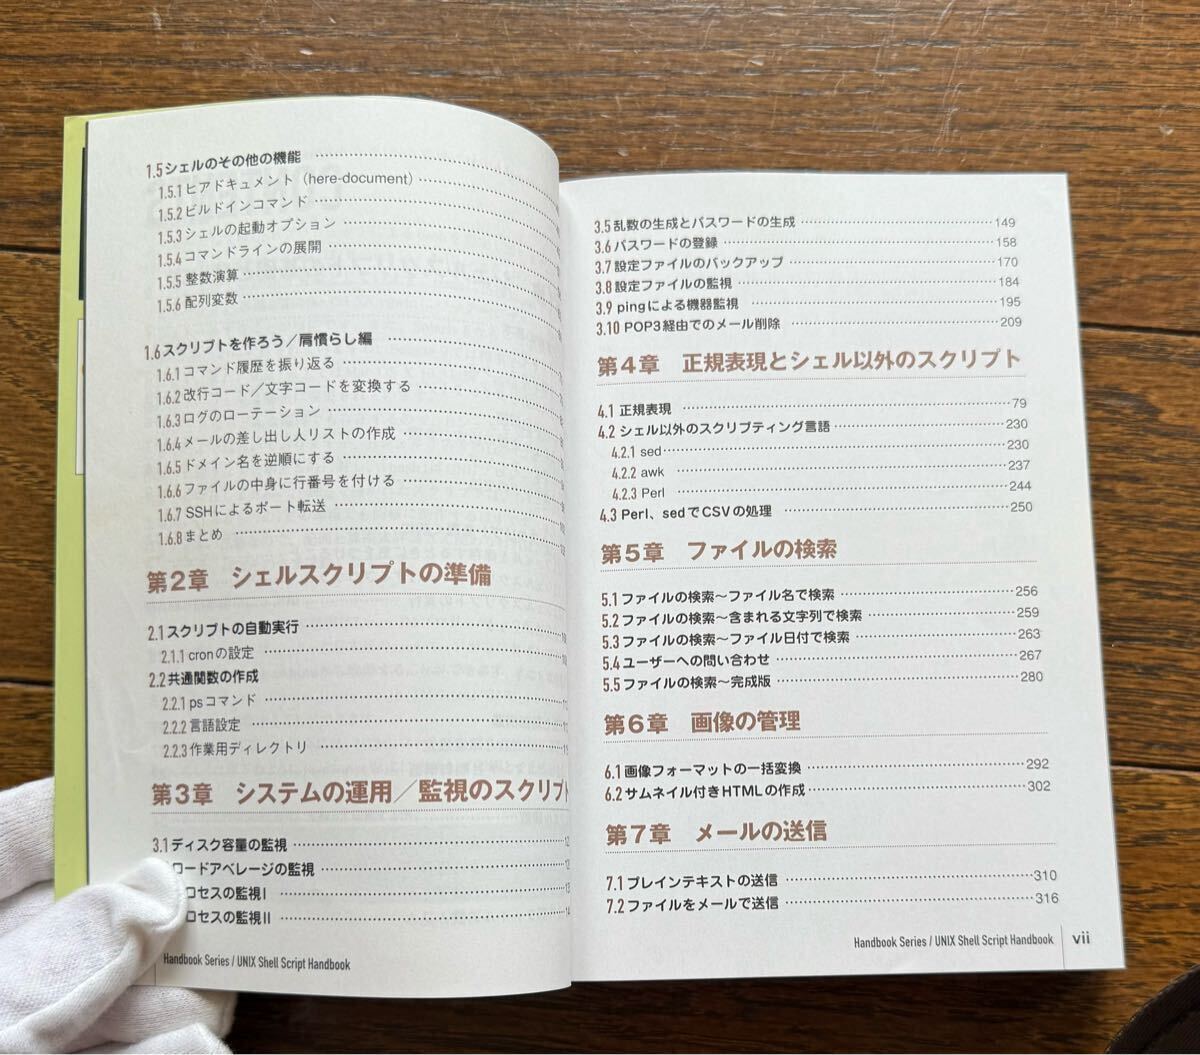 1.5 シェルのその他の機能
1.5.1 ヒアドキュメント（here-document）
1.5.2 ビルドインコマンド
1.5.3 シェルの起動オプション
1.5.4 コマンドラインの展開
1.5.5 整数演算
1.5.6 配列変数
1.6 スクリプトを作ろう／肩慣らし編
1.6.1 コマンド履歴を振り返る
1.6.2 改行コード／文字コードを変換する
1.6.3 ログのローテーション
1.6.4 メールの差し出し人リストの作成
1.6.5 ドメイン名を逆順にする
1.6.6 ファイルの中身に行番号を付ける
1.6.7 SSHによるポート転送
1.6.8 まとめ
第2章 シェルスクリプトの準備
2.1 スクリプトの自動実行
2.1.1 cronの設定
2.2 共通関数の作成
2.2.1 psコマンド
2.2.2 言語設定
2.2.3 作業用ディレクトリ
第3章 システムの運用／監視のスクリプト
3.1 ディスク容量の監視
ロードアベレージの監視
ロセスの監視I
ロセスの監視II
Handbook Series / UNIX Shell Script Handbook
3.5 乱数の生成とパスワードの生成 149
3.6 パスワードの登録 158
3.7 設定ファイルのバックアップ 170
3.8 設定ファイルの監視 184
3.9 pingによる機器監視 195
3.10 POP3経由でのメール削除 209
第4章 正規表現とシェル以外のスクリプト
4.1 正規表現 79
4.2 シェル以外のスクリプティング言語 230
4.2.1 sed 230
4.2.2 awk 237
4.2.3 Perl 244
4.3 Perl、sedでCSVの処理 250
第5章 ファイルの検索
5.1 ファイルの検索～ファイル名で検索 256
5.2 ファイルの検索～含まれる文字列で検索 259
5.3 ファイルの検索～ファイル日付で検索 263
5.4 ユーザーへの問い合わせ 267
5.5 ファイルの検索～完成版 280
第6章 画像の管理
6.1 画像フォーマットの一括変換 292
6.2 サムネイル付きHTMLの作成 302
第7章 メールの送信
7.1 プレインテキストの送信 310
7.2 ファイルをメールで送信 316
Handbook Series / UNIX Shell Script Handbook vii